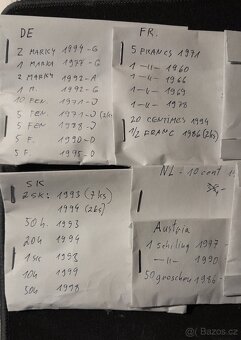 DE
2 MARKY 1994-G
1 MARKA 1977-G
2 MARKY 1992-A
1 M. 1992-G
10 FEN. 1971-J
5 FEN. 1971-J (2ks)
5 FEN. 1978-J
5 F. 1990-D
5 F. 1995-D
FR.
5 FRANCS 1971
1 -"- 1960
1 -"- 1966
1 -"- 1969
1 -"- 1978
20 CENTIMES 1994
1/2 FRANC 1986 (2ks)
SK
2 SK: 1993 (7ks)
1994 (2ks)
50h. 1993
20h 1994
1sk 1993
10h 1994
50h 1978
NL - 10 cent
Austria
1 schiling 1977
-"- 1990
50 groschen 1986
© Bazos.cz